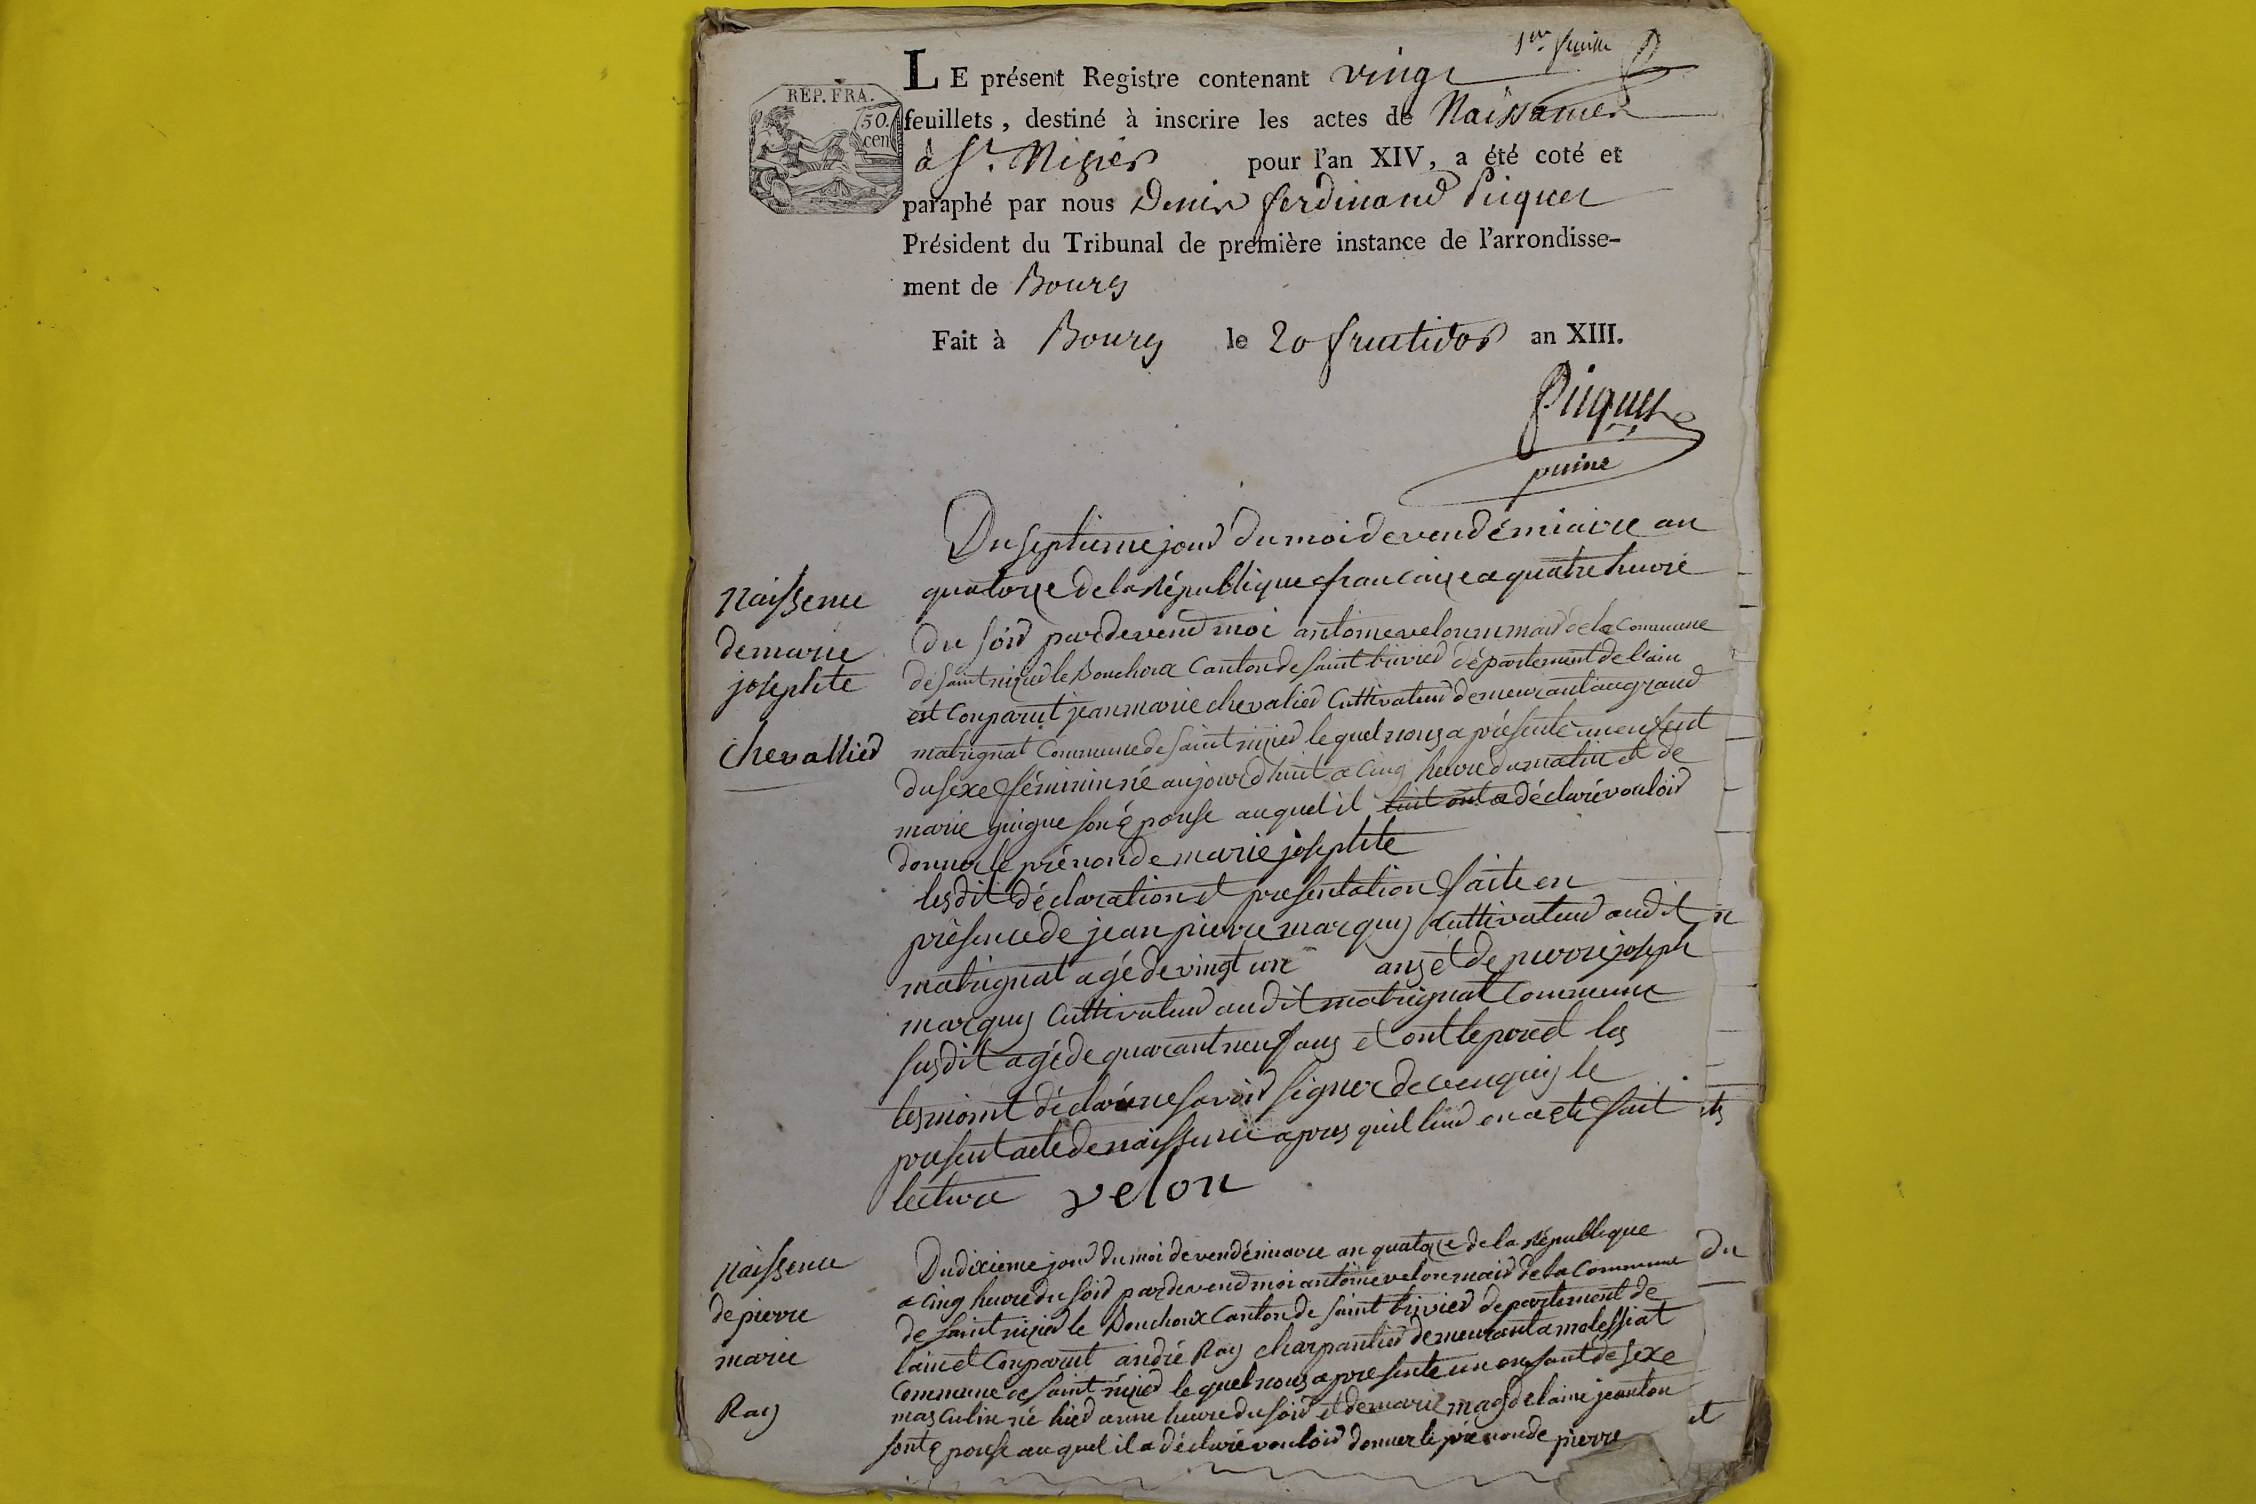 1er feuille
LE présent Registre contenant vingt
REP. FRA.
50.
cen
feuillets, destiné à inscrire les actes de Naissances
à St. Nizier pour l'an XIV, a été coté et
paraphé par nous Denis ferdinand Picquet
Président du Tribunal de première instance de l'arrondisse-
ment de Bourg
Fait à Bourg le 20 fructidor an XIII.
Picquet
puiné
Du septieme jour du moi de vendémiaire an
quatorze de la République francaize a quatre heure
du soir pardevend moi antoine velon maire de la Commune
de Saint nizier le Bouchoux Canton de Saint trivier département de l'ain
est Conparut jean marie chevalier Cultivateur demeurant au grand
matrignat Commune de Saint nizier le quel nous a présenté une enfent
du sexe féminin né aujourdhuit a Cinq heure du matin et de
marie guigue son épouse au quel il a déclaré vouloir
donner le prénon de marie josephte
lesdit déclaration et presentation faite en
présence de jean pierre marquis Cultivateur audit
matrignat agé de vingt une ans et de pierre joseph
marquis Cultivateur audit matrignat Commune
susdit agé de quarant neuf ans et ont le pere et les
tesmoint déclaré ne savoir signer de ceuquis le
present acte de naissence apres quil leur en a ete fait
lecture velon
Naissence
de marie
josephte
chevallier
Du dixieme jour du moi de vendémiaire an quatorze de la République
a Cinq heure du soir pardevend moi antoine velon maire de la Commune
de Saint nizier le Bouchoux Canton de Saint trivier departement de
lain et Conparut andré Ray charpantier demeurant a molessiat
Commune de Saint nizier le quel nous a presenté un enfant de sexe
masculin né hier a une heure du soir et de marie magdelaine jeanton
sont épouse au quel il a déclaré vouloir donner le prénon de pierre
Naissence
de pierre
marie
Ray
Du
et